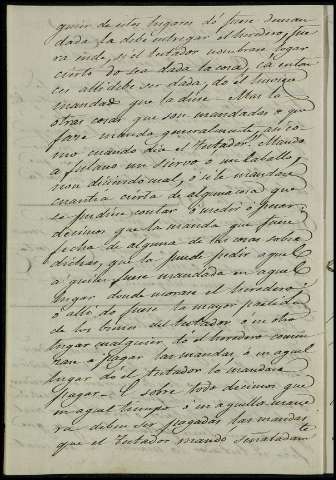 quier de estos lugares dó fuere deman
dada la debe entregar el heredero, fue
ra ende, si el testador nombrase logar
cierto do sea dada la cosa, ca enton
ces alli debe ser dada, do el
mandó que la diese. Mas las
otras cosas que son mandadas o que
face manda generalmente, asi co
mo cuando dice el Testador: Mando
a fulano un siervo o un caballo,
non diciendo cual, ó si le mandare
cuantia cierta de alguna cosa que
se pudiese contar ó medir ó pesar
decimos que la manda que fuese
fecha de alguna de las cosas sobre
dichas, que la puede pedir aquel
a quien fuese mandada en aquel
lugar donde morare el heredero
o alli do fuese la mayor partida
de los bienes del testador ó en otro
lugar cualquier do el heredero comen
zare a pagar las mandas, ó en aquel
lugar dó el testador la mandare
pagar. E sobre todo decimos que
en aquel tiempo ó en aquella mane
ra deben ser pagadas las mandas
que el Testador mandó señaladamte